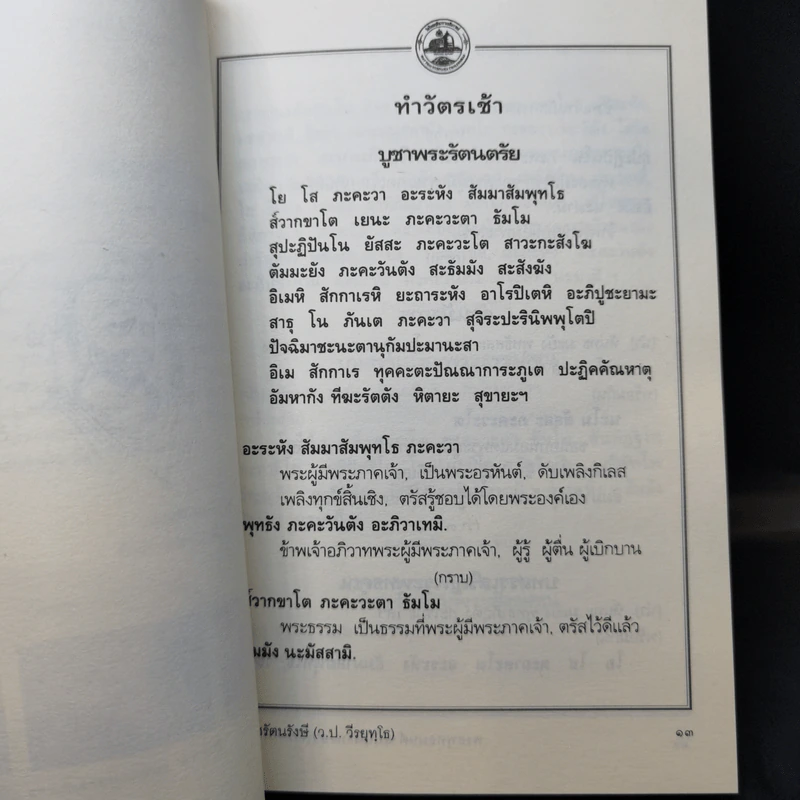 ทำวัตรเช้า
บูชาพระรัตนตรัย
โย โส ภะคะวา อะระหัง สัมมาสัมพุทโธ
ส์วากขาโต เยนะ ภะคะวะตา ธัมโม
สุปะฏิปันโน ยัสสะ ภะคะวะโต สาวะกะสังโฆ
ตัมมะยัง ภะคะวันตัง สะธัมมัง สะสังฆัง
อิเมหิ สักกาเรหิ ยะถาระหัง อาโรปิเตหิ อะภิปูชะยามะ
สาธุ โน ภันเต ภะคะวา สุจิระปะรินิพพุโตปิ
ปัจฉิมาชะนะตานุกัมปะมานะสา
อิเม สักกาเร ทุคคะตะปัณณาการะภูเต ปะฏิคคัณหาตุ
อัมหากัง ทีฆะรัตตัง หิตายะ สุขายะฯ
อะระหัง สัมมาสัมพุทโธ ภะคะวา
พระผู้มีพระภาคเจ้า, เป็นพระอรหันต์, ดับเพลิงกิเลส
เพลิงทุกข์สิ้นเชิง, ตรัสรู้ชอบได้โดยพระองค์เอง
พุทธัง ภะคะวันตัง อะภิวาเทมิ.
ข้าพเจ้าอภิวาทพระผู้มีพระภาคเจ้า, ผู้รู้ ผู้ตื่น ผู้เบิกบาน
(กราบ)
ส์วากขาโต ภะคะวะตา ธัมโม
พระธรรม เป็นธรรมที่พระผู้มีพระภาคเจ้า, ตรัสไว้ดีแล้ว
นะมัสสามิ.
รัตนรังษี (ว.ป. วีรยุทฺโธ) ๑๓